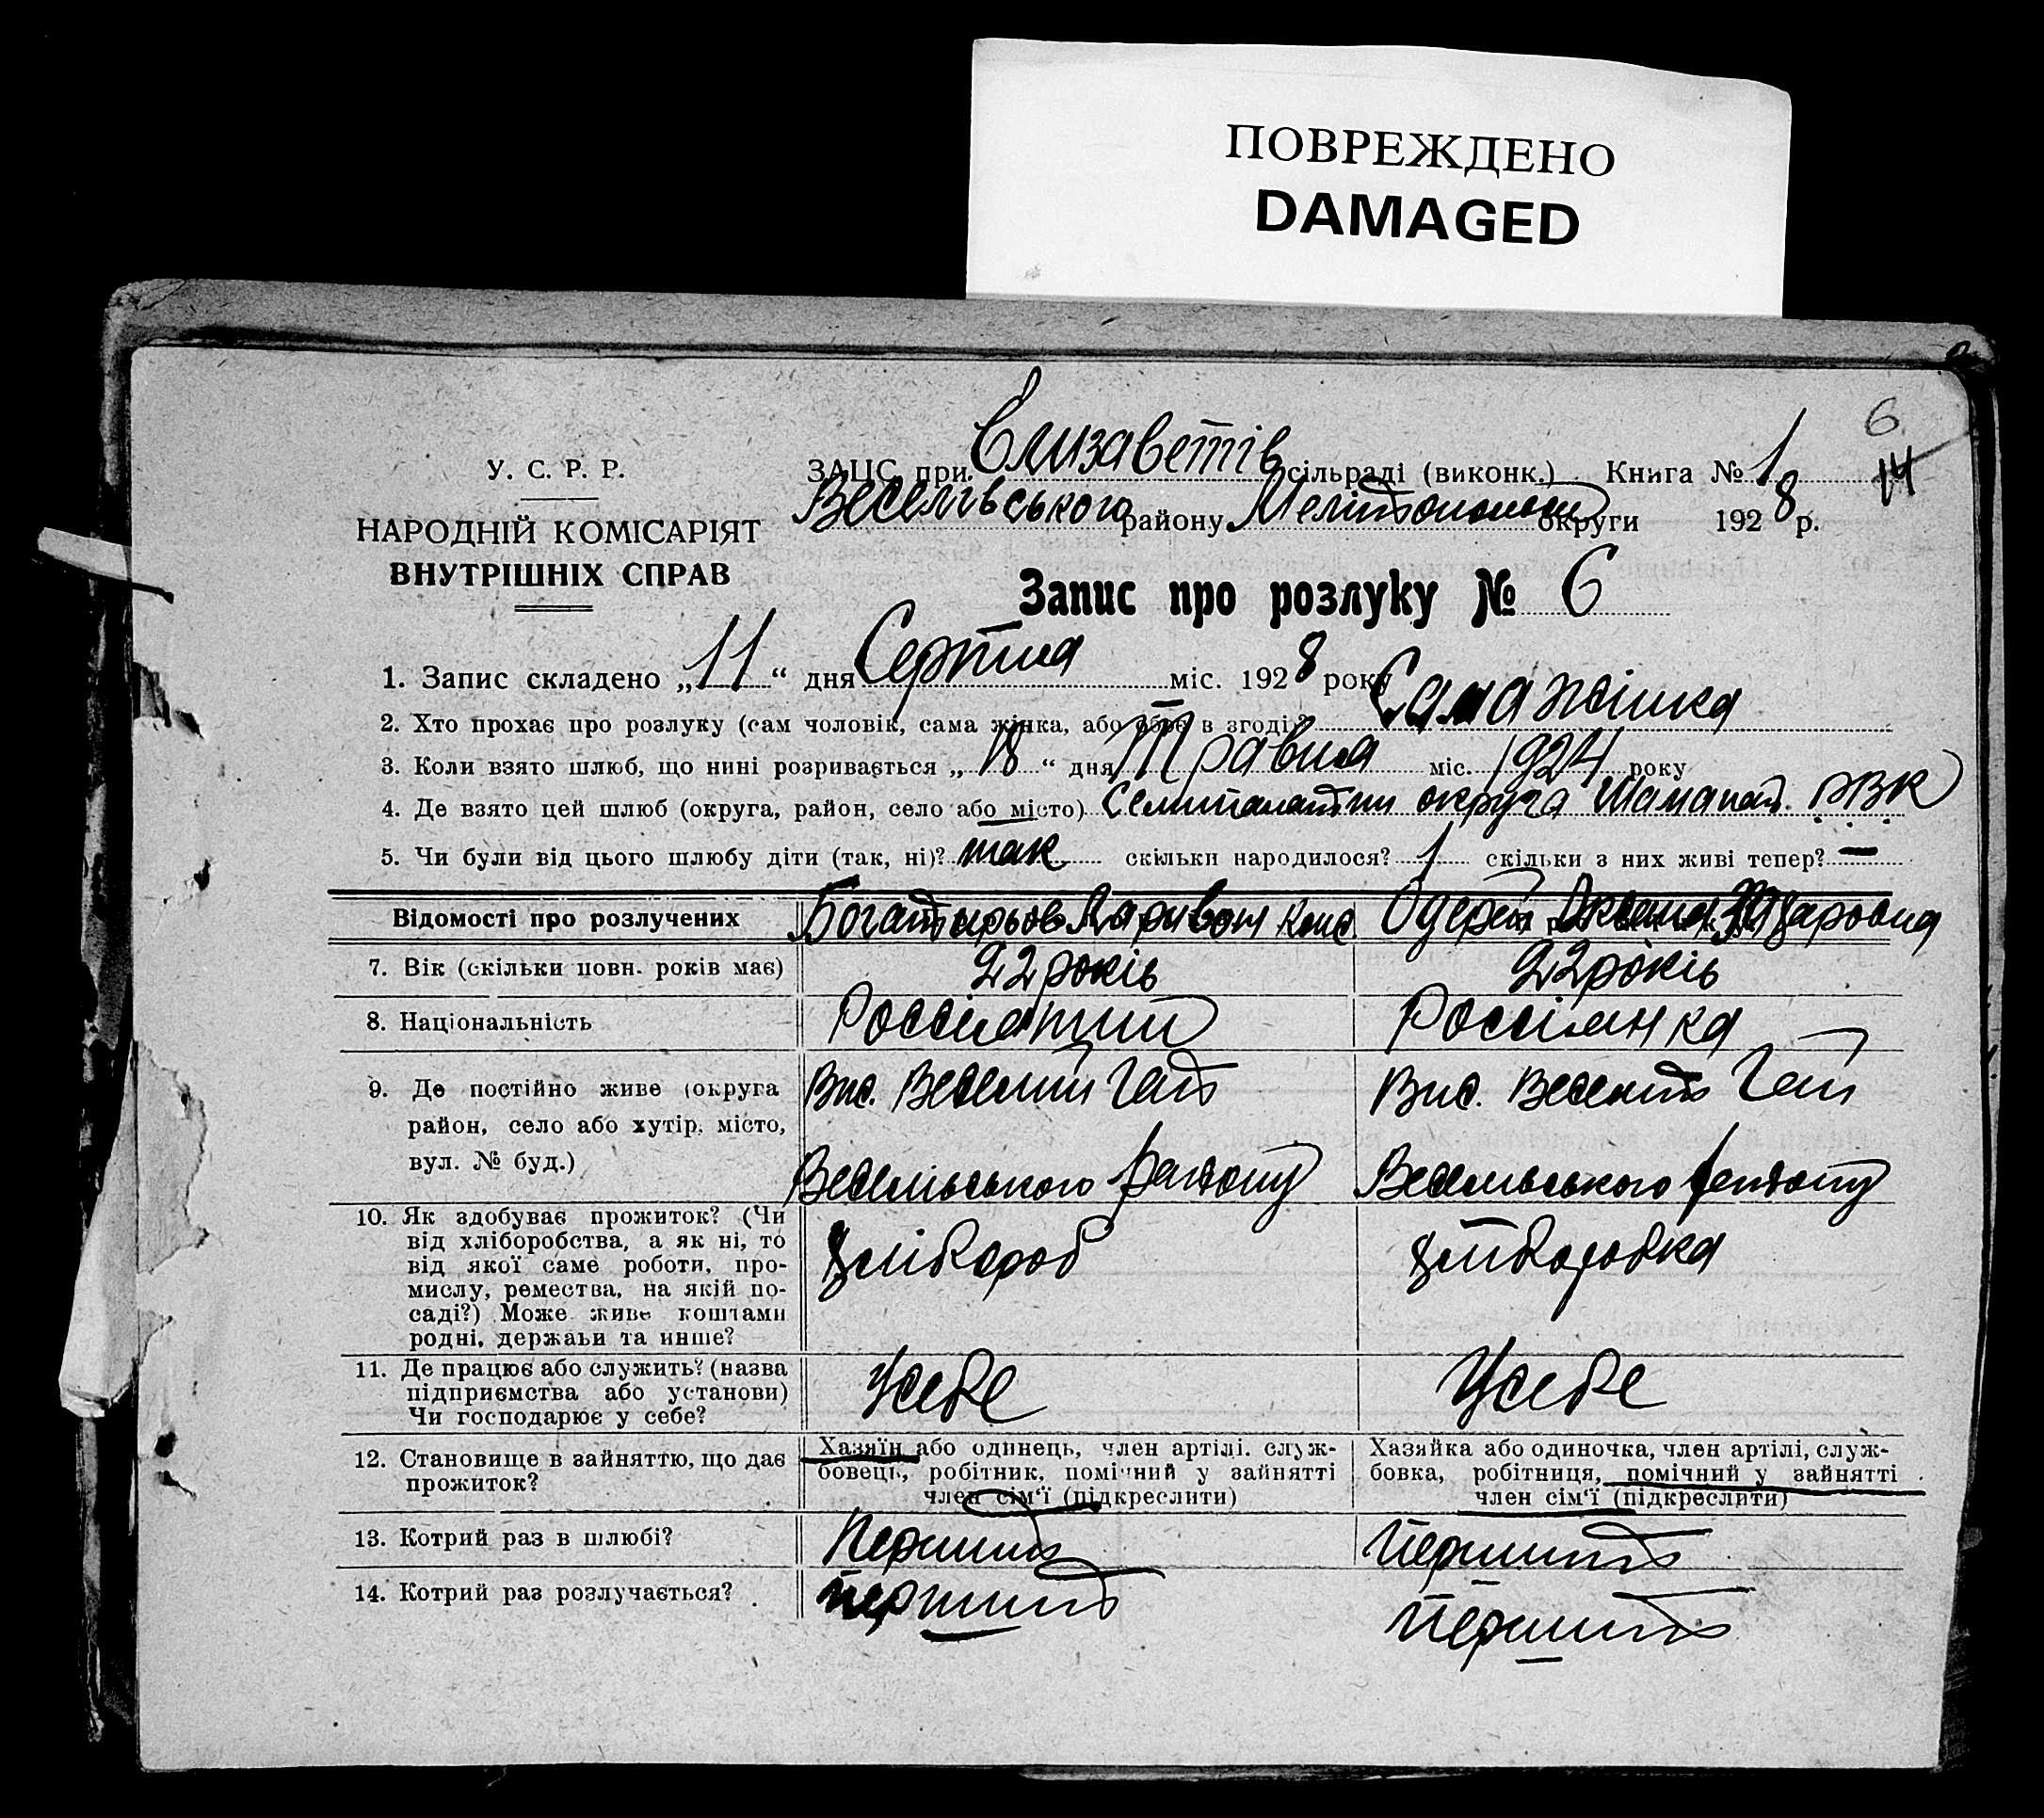 ПОВРЕЖДЕНО
DAMAGED
6
14
У. С. Р. Р.
НАРОДНІЙ КОМІСАРІЯТ
ВНУТРІШНІХ СПРАВ
ЗАЦС при Єлизаветів сільраді (виконк.) Книга № 1
Веселівського району Мелітопольсь округи 1928 р.
Запис про розлуку № 6
1. Запис складено „11“ дня Серпня міс. 1928 року
2. Хто прохає про розлуку (сам чоловік, сама жінка, або обоє в згоді)? Сама жінка
3. Коли взято шлюб, що нині розривається „18“ дня Травня міс. 1924 року
4. Де взято цей шлюб (округа, район, село або місто) округа РВК
5. Чи були від цього шлюбу діти (так, ні)? так скільки народилося? 1 скільки з них живі тепер? —
Відомості про розлучених Богатирьов Ларивон Одерій Оксана
7. Вік (скільки повн. років має) 22 років 22 років
8. Національність Россіянин Россіянка
9. Де постійно живе (округа
район, село або хутір, місто,
вул. № буд.)
Вис. Веселий Гай
Веселівського району
Вис. Веселий Гай
Веселівського району
10. Як здобуває прожиток? (Чи
від хліборобства, а як ні, то
від якої саме роботи, про-
мислу, ремества, на якій по-
саді?) Може живе коштами
родні, держави та инше?
Хлібороб
Хліборобка
11. Де працює або служить? (назва
підприємства або установи)
Чи господарює у себе?
У себе
У себе
12. Становище в зайняттю, що дає
прожиток?
Хазяїн або одинець, член артілі, служ-
бовець, робітник, помічний у зайнятті
член сім'ї (підкреслити)
Хазяйка або одиночка, член артілі, служ-
бовка, робітниця, помічний у зайнятті
член сім'ї (підкреслити)
13. Котрий раз в шлюбі? Перший Перший
14. Котрий раз розлучається? перший Перший